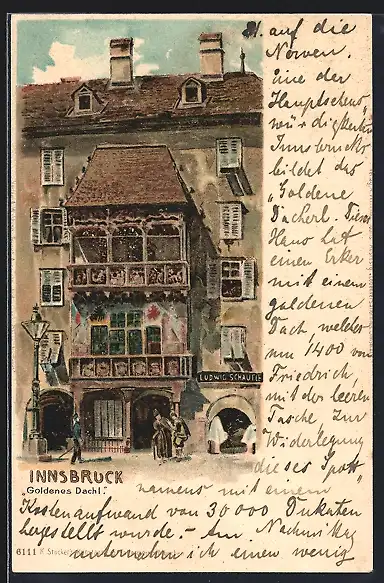 21. auf die
Nerven.
Eine der
Hauptsehens
würdigkeiten
Innsbrucks
bildet das
„Goldene
Dacherl. Dieses
Haus hat
einen Erker
mit einem
goldenen
Dach welcher
um 1400 von
Friedrich,
mit der leeren
Tasche zur
Widerlegung
dieses Spott
namens mit einem
Kostenaufwand von 30000 Dukaten
hergestellt wurde. – Am Nachmittag
unternahm ich einen wenig
LUDWIG SCHAUFLE
INNSBRUCK
„Goldenes Dachl."
6111